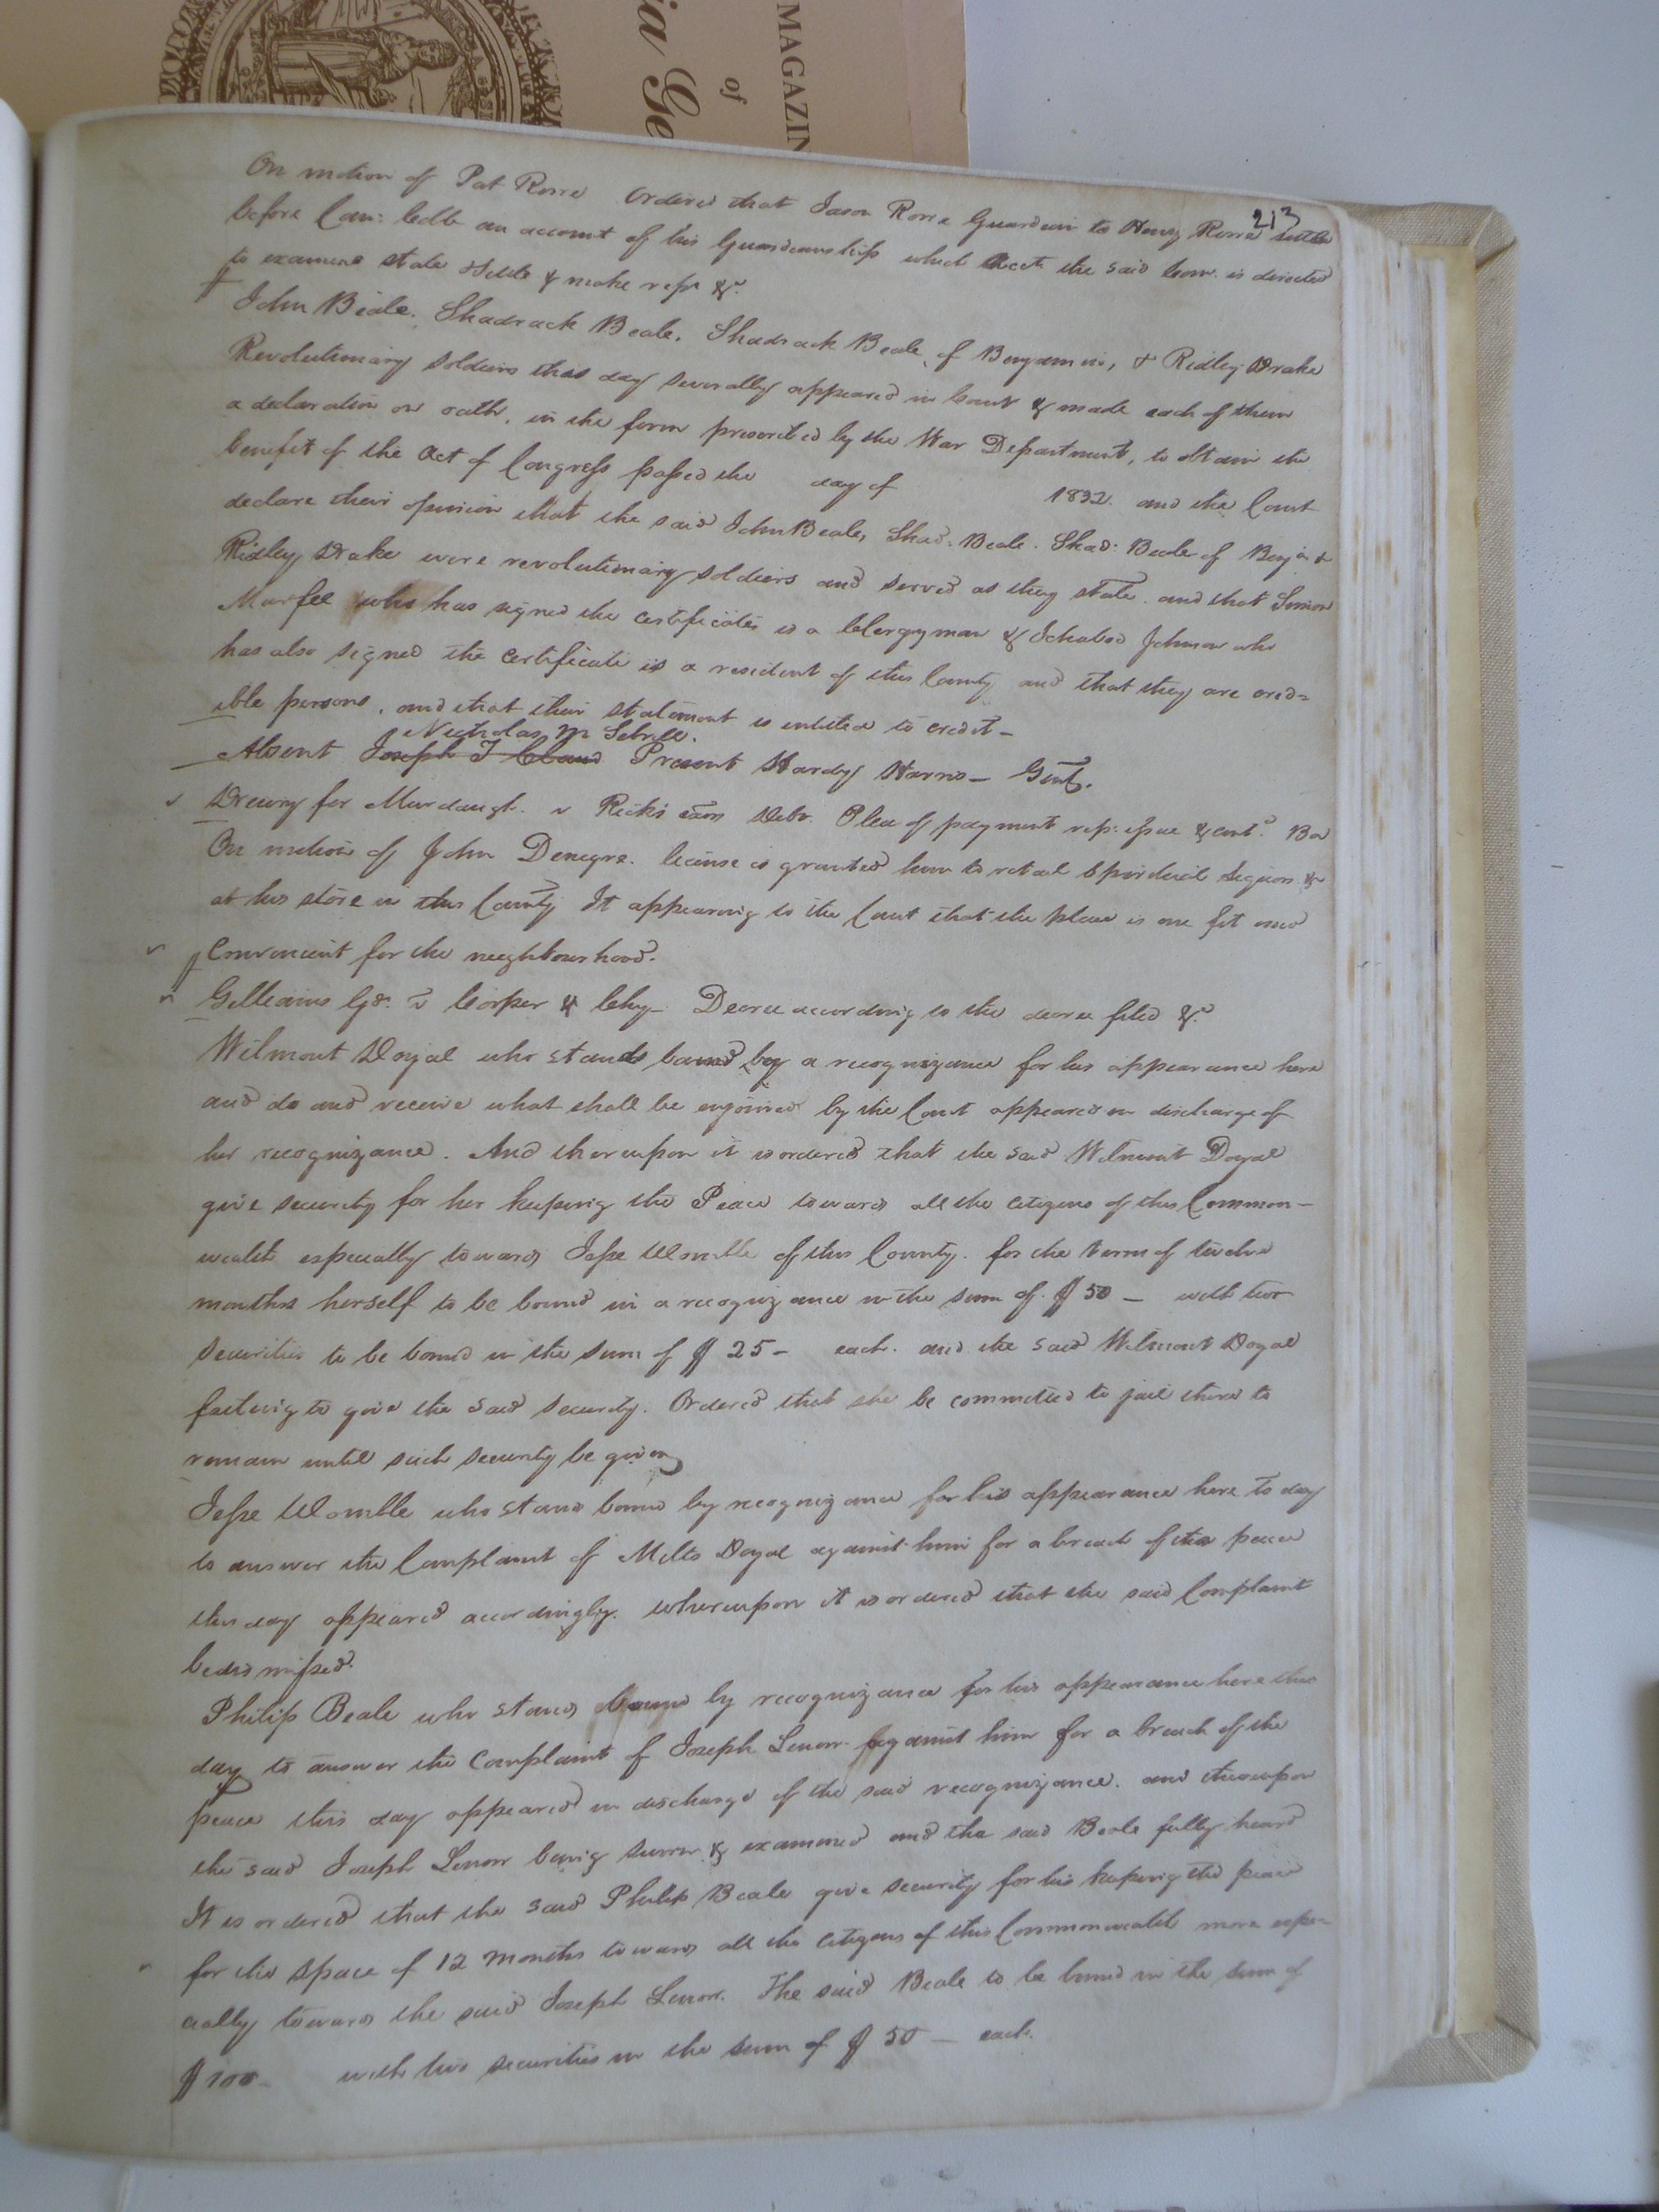 MAGAZIN
of
ia Ge
213
On motion of Pat Rorre Ordered that Jason Rorre Guardian to Henry Rorre settle
before Com: Cobb an account of his Guardianship which acct the said Com. is directed
to examine state settle & make repo &c.
John Beale. Shadrack Beale. Shadrack Beale of Benjamin, & Ridley Drake
Revolutionary soldiers this day severally appeared in Court & made each of them
a declaration on oath, in the form prescribed by the War Department, to obtain the
benefit of the act of Congress passed the day of 1832. and the Court
declare their opinion that the said John Beale, Shad. Beale. Shad: Beale of Benja &
Ridley Drake were revolutionary soldiers and served as they state. and that Simon
Murfee who has signed the certificates is a Clergyman & Ichabod Johnson who
has also signed the certificate is a resident of this County and that they are cred=
ible persons, and that their statement is entitled to credit –
Nicholas M Sebrell.
Absent Joseph T Claud Present Hardy Harris – Gent.
Drewry for Murdaugh. v Ricks exon Debt. Plea of payment rep: issue & cont.d
On motion of John Denegre. license is granted him to retail spirituial liquors &c
at his store in this County It appearing to the Court that the place is one fit and
Convenient for the neighbourhood.
Gilliams Gd. v Corper & Chy – Decree according to the decree filed &c
Wilmont Doyal who stands bound by a recognizance for her appearance here
and do and receive what shall be enjoined by the Court appeared in discharge of
her recognizance. And thereupon it is ordered that the said Wilmont Doyal
give security for her keeping the Peace towards all the citizens of this Common–
wealth especially towards Jesse Womble of this County. for the term of twelve
months herself to be bound in a recognizance in the sum of $ 50 – with two
securities to be bound in the sum of $ 25 – each. and the said Wilmont Doyal
faileing to give the said security. Ordered that she be committed to jail there to
remain until such security be given
Jesse Womble who stand bound by recognizance for his appearance here to day
to answer the Complaint of Milts Doyal against him for a breach of the peace
this day appeared accordingly. whereupon it is ordered that the said Complaint
be dismissed.
Philip Beale who stands bound by recognizance for his appearance here this
day to answer the Complaint of Joseph Lenow against him for a breach of the
peace this day appeared in discharge of the said recognizance. and thereupon
the said Joseph Lenow being sworn & examined and the said Beale fully heard
It is ordered that the said Philip Beale give security for his keeping the peace
for the space of 12 months towards all the citizens of this Commonwealth more espe=
cially towards the said Joseph Lenow. The said Beale to be bound in the sum of
$ 100 – with two securities in the sum of $ 50 – each.